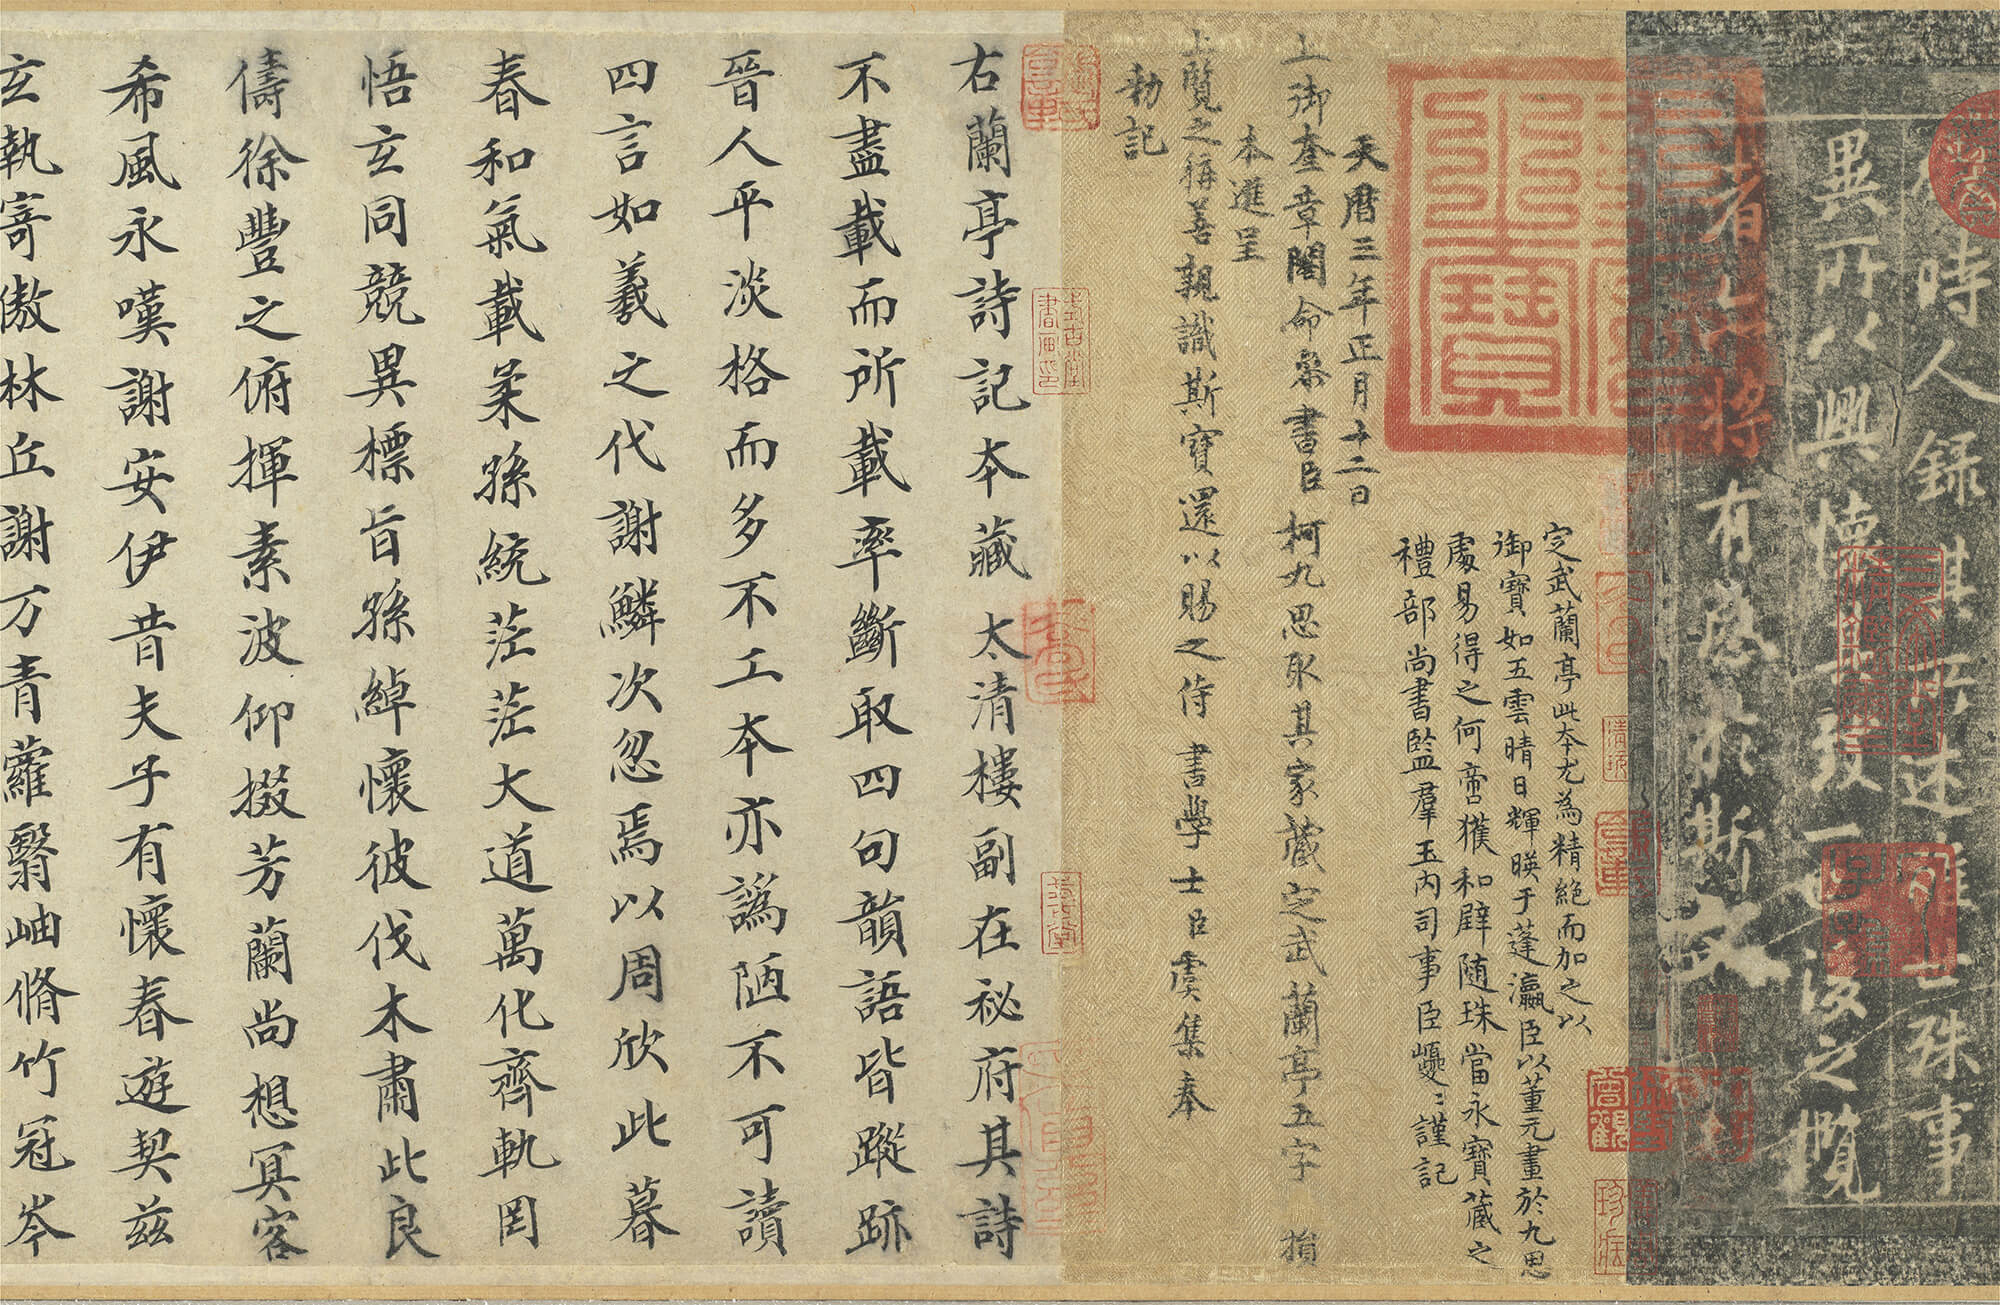 時人錄其所述雖世殊事
異所以興懷其致一也後之攬
者亦將有感於斯文
天曆之寶
定武蘭亭此本尤為精絕而加之以
御寶如五雲晴日輝暎于蓬瀛臣以董元畫於九思
處易得之何啻獲和璧随珠當永寶藏之
禮部尚書監羣玉內司事臣巙〻謹記
天曆三年正月十二日
上御奎章閣命叅書臣柯九思取其家藏定武蘭亭五字損
本進呈
上覽之稱善親識斯寶還以賜之侍書學士臣虞集奉
勑記
右蘭亭詩記本藏太清樓副在祕府其詩
不盡載而所載率斷取四句韻語皆蹤跡
晉人平淡格而多不工本亦譌陋不可讀
四言如羲之代謝鱗次忽焉以周欣此暮
春和氣載柔孫統茫茫大道萬化齊軌罔
悟玄同競異標旨孫綽懷彼伐木肅此良
儔徐豐之俯揮素波仰掇芳蘭尚想冥客
希風永嘆謝安伊昔夫子有懷春遊契茲
玄執寄傲林丘謝万青蘿翳岫脩竹冠岑